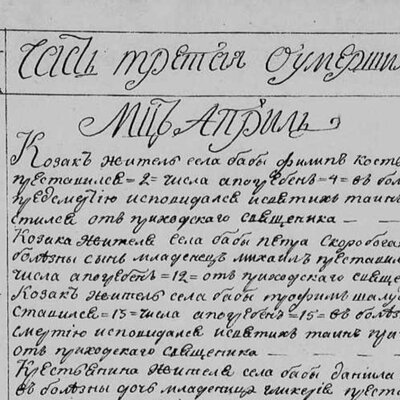 Часть третая оумерши
Мцъ Априль
Козакъ житель села бабы филипъ косте
преставился =2= числа апогребенъ =4= въ бол
предсмертію исповидался исвятихъ таинъ
стился отъ приходскаго священика
Козака жителя села бабы петра скоробога
болѣзны сынъ младенецъ михаилъ преставил
числа апогребенъ =12= отъ приходскаго свяще
Козакъ житель села бабы трофимъ шалу
ставился =13= числа апогребенъ =15= въ болѣз
смертію исповидался исвятихъ таинъ при
отъ приходскаго священика
Крестьянина жителя села бабы даніила
въ болѣзны дочь младеница гликерія преста